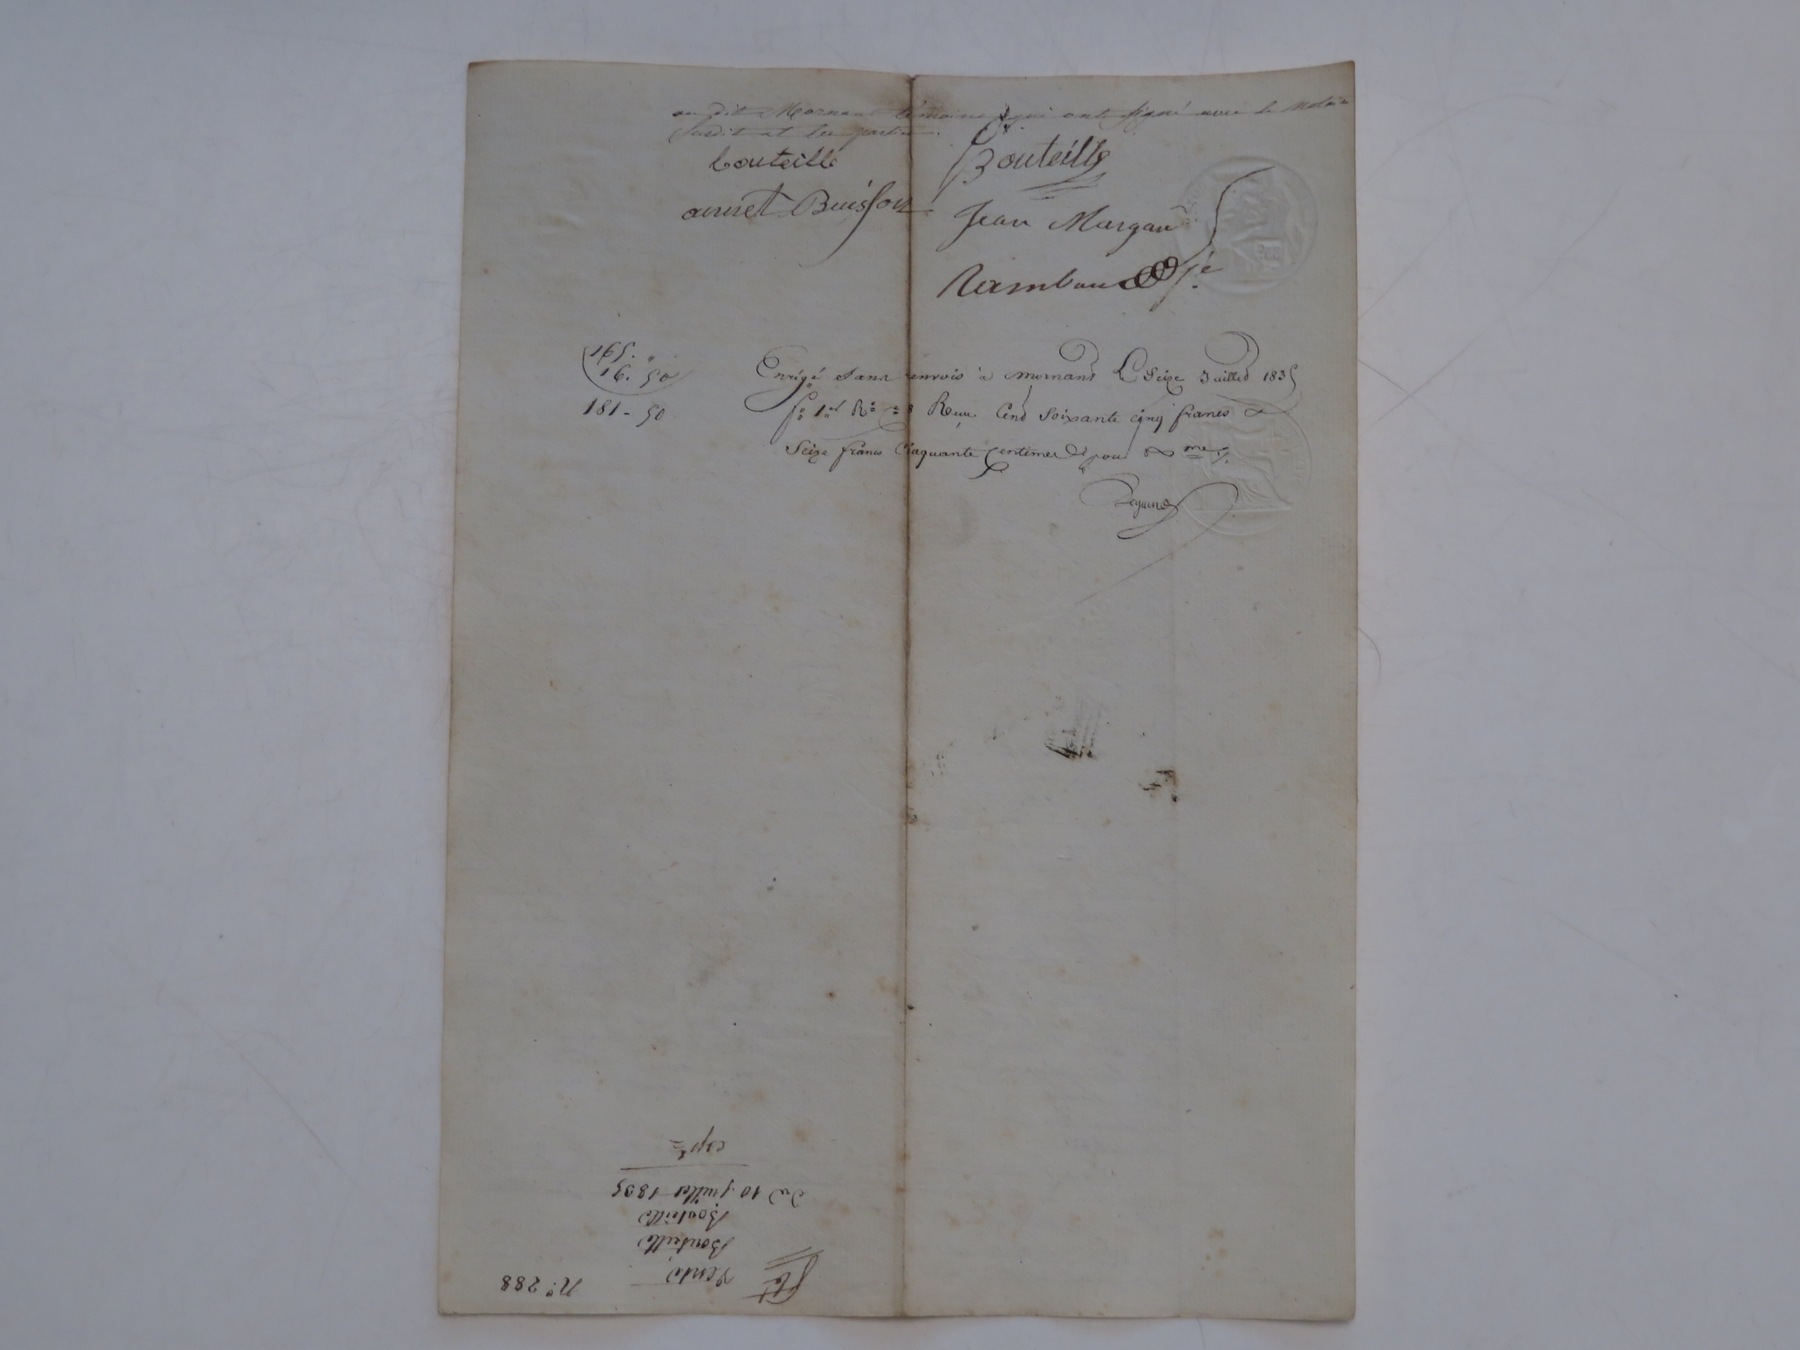 au dit Mornant témoins qui ont signé avec le Notaire
susdit et les parties.
bouteille
Bouteille
annet Buisson
Jean Margan
Rambau
165. "
16. 50
181 - 50
Enrégé Sans renvois à mornant Le Seize Juillet 1835
fo 1er Ro Reçu Cent Soixante cinq francs &
Seize francs Cinquante Centimes pour
No. 288
Vente
Bouteille
Bouteille
Du 10 juillet 1835
expte